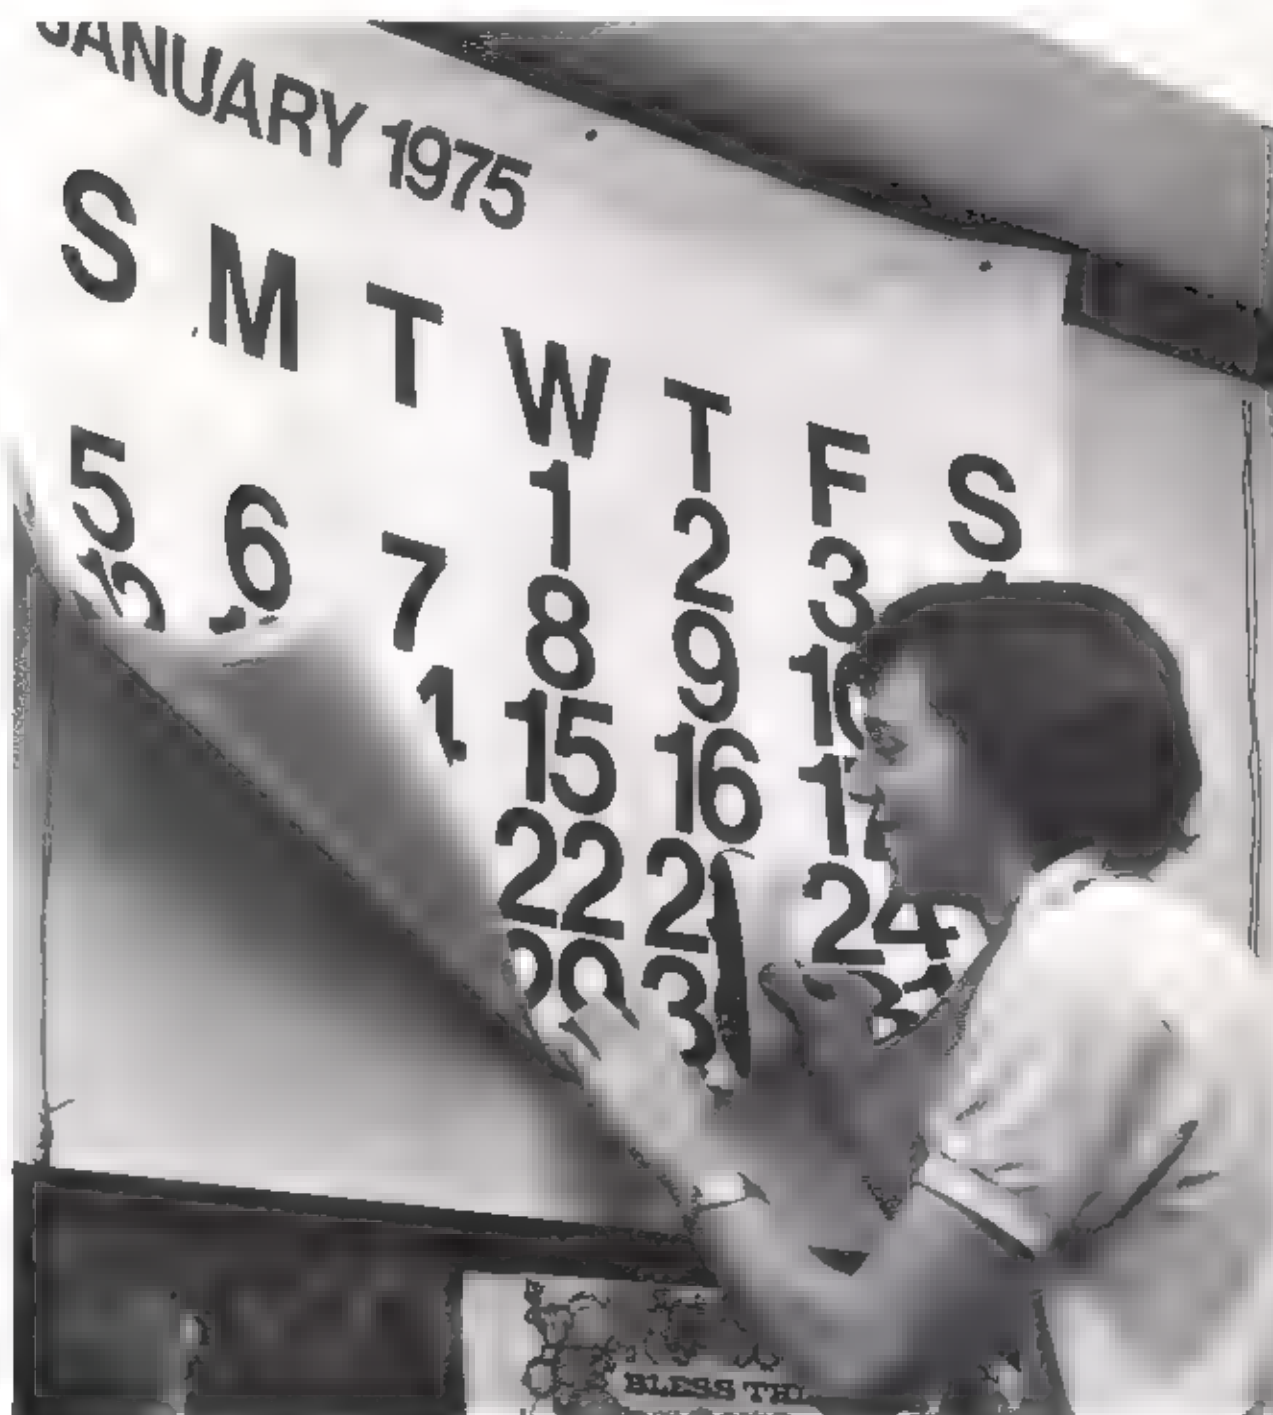 JANUARY 1975
S M T W T F S
1 2 3
5 6 7 8 9 10
15 16 17
22 24
BLESS